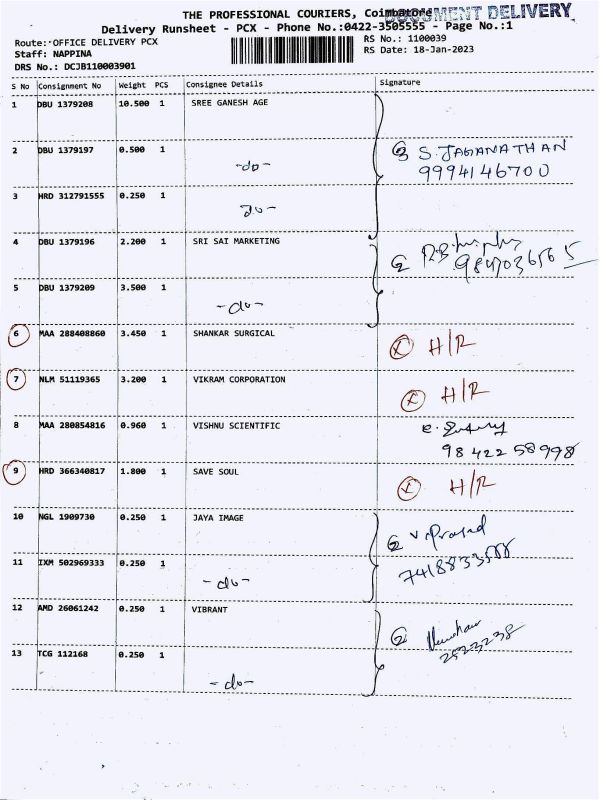 THE PROFESSIONAL COURIERS, Coimbatore
DOCUMENT DELIVERY
Delivery Runsheet - PCX - Phone No.:0422-3505555 - Page No.:1
Route: OFFICE DELIVERY PCX
RS No.: 1100039
Staff: NAPPINA
RS Date: 18-Jan-2023
DRS No.: DCJB110003901
S No Consignment No Weight PCS Consignee Details Signature
1 DBU 1379208 10.500 1 SREE GANESH AGE
2 DBU 1379197 0.500 1 -do- S. JAGANATHAN
9994146700
3 HRD 312791555 0.250 1 do-
4 DBU 1379196 2.200 1 SRI SAI MARKETING
5 DBU 1379209 3.500 1 -do-
6 MAA 288408860 3.450 1 SHANKAR SURGICAL H/R
7 NLM 51119365 3.200 1 VIKRAM CORPORATION H/R
8 MAA 280854816 0.960 1 VISHNU SCIENTIFIC
98422 58998
9 HRD 366340817 1.800 1 SAVE SOUL H/R
10 NGL 1909730 0.250 1 JAYA IMAGE V. Prasad
11 IXM 502969333 0.250 1 -do-
12 AMD 26061242 0.250 1 VIBRANT
13 TCG 112168 0.250 1 -do-